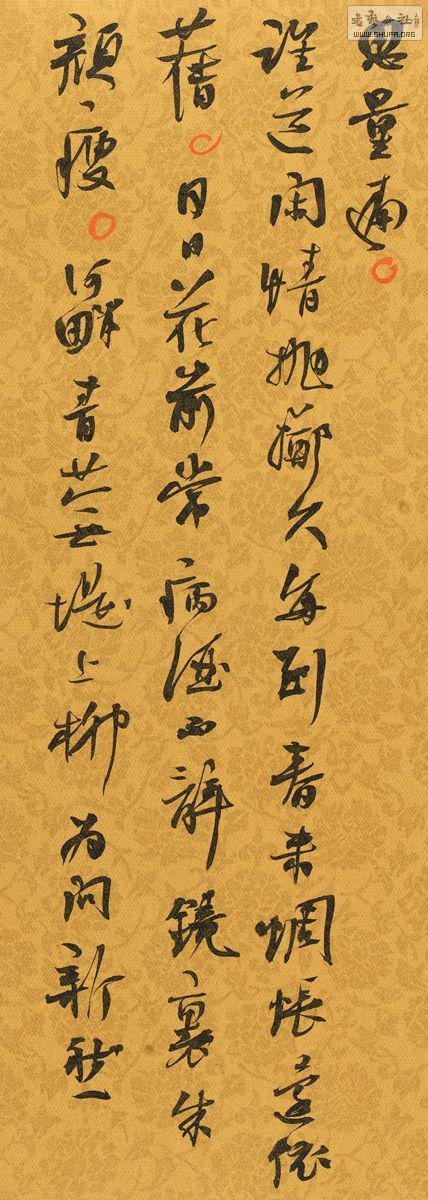 書藝公社
WWW.SHUFA.ORG
思量遍
誰道閑情抛擲久每到春来惆悵還依
舊日日花前常病酒不辭鏡裏朱
顔瘦河畔青蕪堤上柳为問新愁